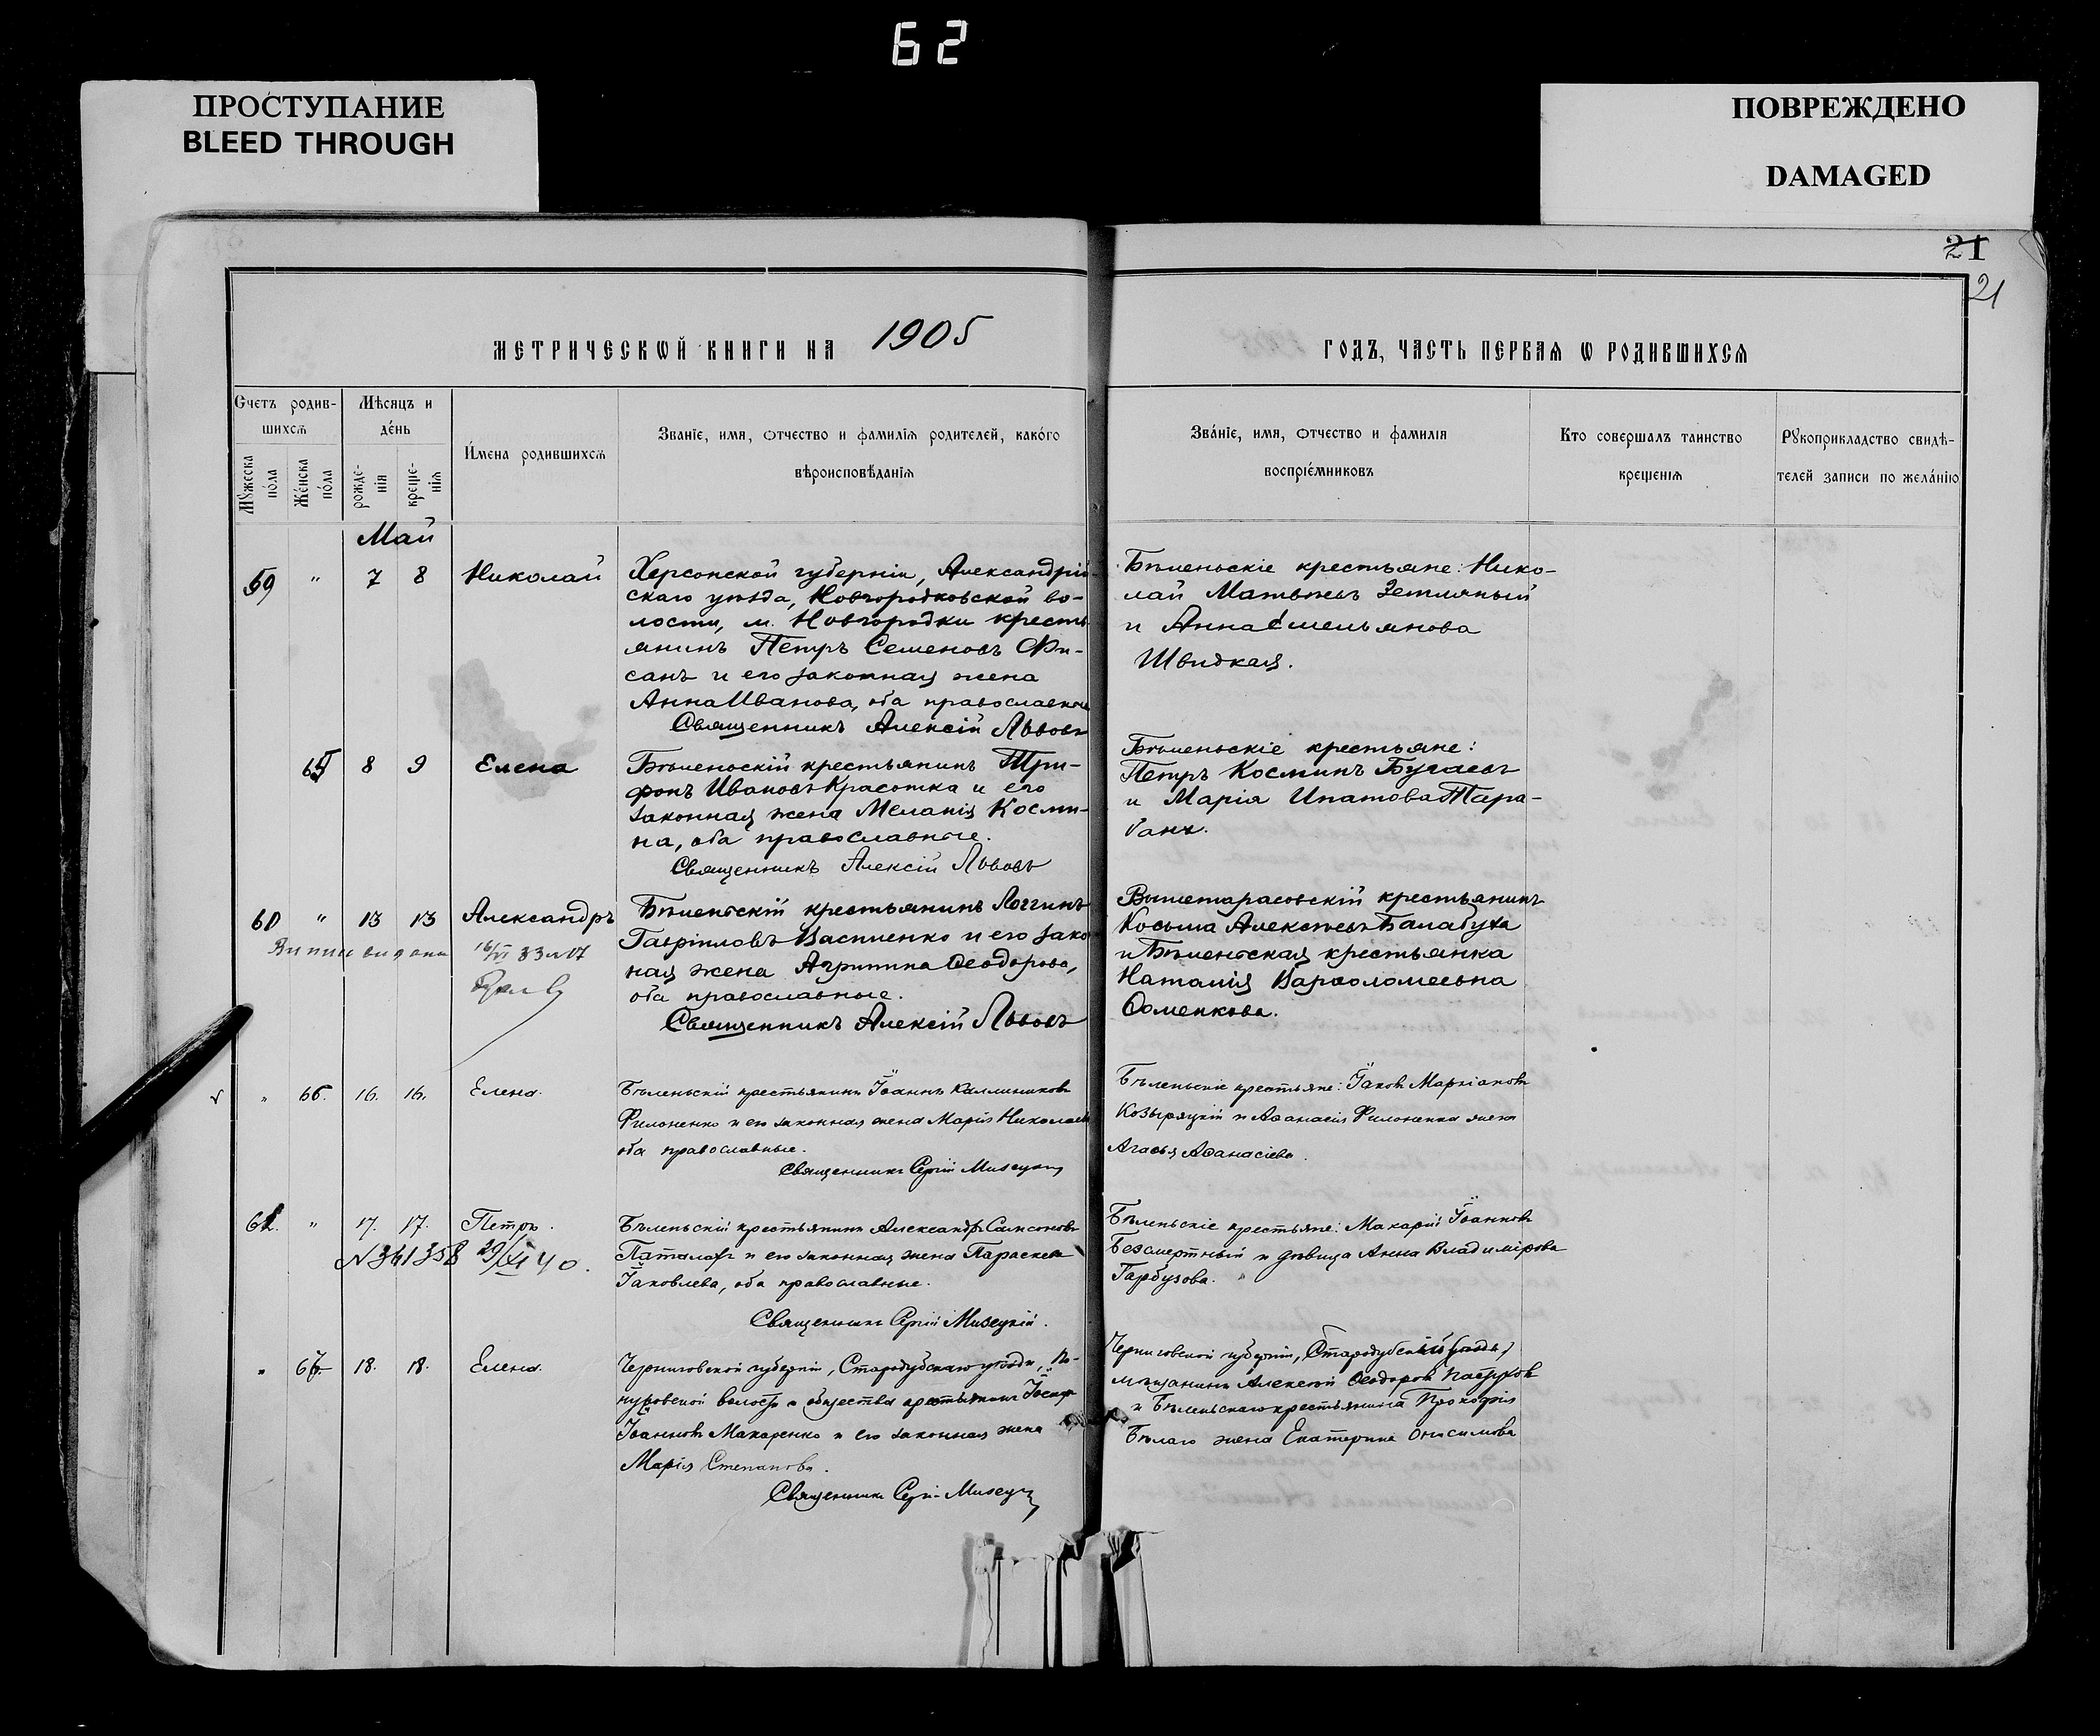 62
ПРОСТУПАНИЕ
BLEED THROUGH
ПОВРЕЖДЕНО
DAMAGED
21
21
МЕТРИЧЕСКѠЙ КНИГИ НА 1905
ГОДЪ, ЧАСТЬ ПЕРВАѦ Ѡ РОДИВШИХСѦ
Счетъ родив-
шихсѧ
Мѣсяцъ и
де́нь
И́мена родившихсѧ
Званіе, имя, ѻтчество и фамиліѧ родителей, како́го
вѣроисповѣданіѧ
Зва́ніе, имя, ѻтчество и фамиліѧ
воспріе́мниковъ
Кто совершалъ таинство
крещеніѧ
Рꙋкоприкладство свидѣ-
телей записи по жела́нію
Мꙋжеска
по́ла
Же́нска
по́ла
рожде-
нія
креще-
нія
Май
59 " 7 8 Николай
Херсонской губерніи, Александрій-
скаго уѣзда, Новгородковской во-
лости, м. Новгородки кресть
янинъ Петръ Семеновъ Фи-
санъ и его законная жена
Анна Иванова, оба православные
Священникъ Алексій Львовъ
Бѣленьскіе крестьяне: Нико-
лай Матвѣевъ Земляный
и Анна Емельянова
Швидкая.
65 8 9 Елена
Бѣленьскій крестьянинъ Три-
фонъ Ивановъ Красотка и его
законная жена Меланія Косми-
на, оба православные.
Священникъ Алексій Львовъ
Бѣленьскіе крестьяне:
Петръ Косминъ Бугаевъ
и Марія Ипатова Тара-
банъ.
60 " 13 13 Александръ
16/VI 33
Бѣленьскій крестьянинъ Логгинъ
Гавріиловъ Василенко и его зако
ная жена Агрипина Ѳеодорова,
оба православные.
Священникъ Алексій Львовъ
Вышетарасовскій крестьянинъ
Косьма Алексѣевъ Балабуха
и Бѣленьская крестьянка
Наталія Варѳоломеевна
Ѳоменкова.
" 66. 16. 16. Елена.
Бѣленьскій крестьянинъ Іоаннъ Каллиниковъ
Филоненко и его законная жена Марія Николаев
оба православные.
Священникъ Сергій
Бѣленьскіе крестьяне: Іаковъ Маркіановъ
Козыряцкій и Аѳанасія Филоненка жена
Агаѳья Аѳанасіева.
61. " 17. 17. Петръ.
N 361358 29/XI 40.
Бѣленьскій крестьянинъ Александръ Самсоновъ
Паталахъ и его законная жена Параскева
Іаковлева, оба православные.
Священникъ Сергій Мизецкій.
Бѣленьскіе крестьяне: Макарій Іоанновъ
Безсмертный и дѣвица Анна Владимірова
Гарбузова.
" 67. 18. 18. Елена.
Черниговской губерніи, Стародубскаго уѣзда, По-
нуровской волости и общества крестьянинъ Іосифъ
Іоанновъ Макаренко и его законная жена
Марія Степанова.
Священникъ Сергій
Черниговской губерніи, Стародубскій
мѣщанинъ Алексѣй Ѳеодоровъ Пастуховъ
и Бѣленьскаго крестьянина Прокофія
Бѣлаго жена Екатерина Онисимова